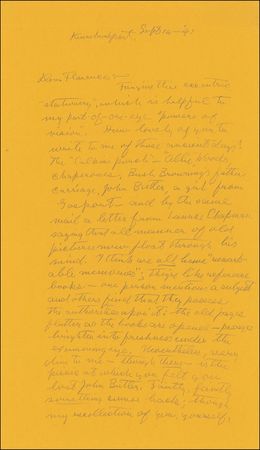 Kennebunkport, Sept 14 -
Dear Florence -
Forgive this eccentric
stationery, which is helpful to
my sort of one-eye powers of
vision. How lovely of you to
write to me of those innocent days!
The "Salam punch" - Allie Woods,
chaperones, Bush Browning's
carriage, John Butler, a girl from
Gosport - and by the same
mail a letter from Chapman
saying that all manner of old
pictures now float through his
mind. I think we all have "
able memories", they're like reference
books - one person mentions a subject
and others find that they possess
the authorities upon it: the old pages
flutter as the books are opened - pages
brighten into freshness under the
eye. Nevertheless,
to me - is the
picnic at which you felt you
lost John Butler. Faintly, faintly
something comes back; though
my recollection of you, yourself,